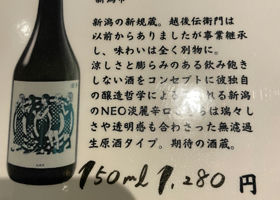 新潟市
新潟の新規蔵。越後伝衛門は
以前からありましたが事業継承
し、味わいは全く別物に。
涼しさと膨らみのある飲み飽き
しない酒をコンセプトに彼独自
の醸造哲学による 新潟
のNEO淡麗辛口 は瑞々し
さや透明感も合わさった無濾過
生原酒タイプ。期待の酒蔵。
150ml 1,280 円